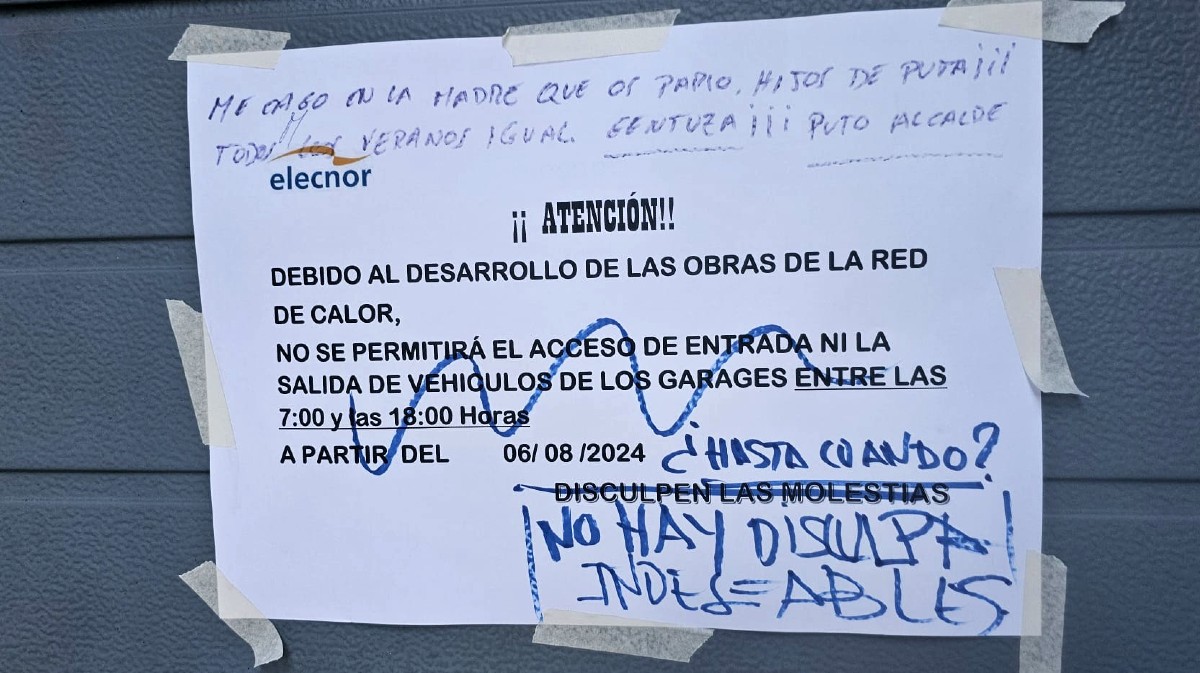 ME CAGO EN LA MADRE QUE OS PARIO. HIJOS DE PUTA¡¡¡
TODOS LOS VERANOS IGUAL. GENTUZA¡¡¡ PUTO ALCALDE
elecnor
¡¡ ATENCIÓN!!
DEBIDO AL DESARROLLO DE LAS OBRAS DE LA RED
DE CALOR,
NO SE PERMITIRÁ EL ACCESO DE ENTRADA NI LA
SALIDA DE VEHICULOS DE LOS GARAGES ENTRE LAS
7:00 y las 18:00 Horas
A PARTIR DEL 06/ 08 /2024 ¿HASTA CUANDO?
DISCULPEN LAS MOLESTIAS
NO HAY DISCULPA
INDESEABLES